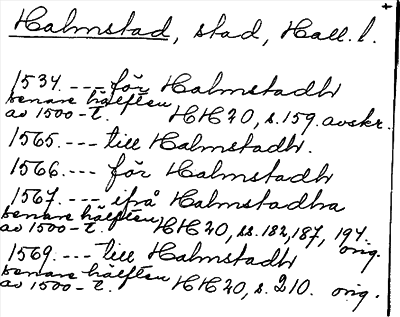 Halmstad, stad, Hall. l. +
1534. --- för Halmstadh
senare hälften
av 1500-t. HH 20, s. 159. avskr.
1565. --- till Halmstadh.
1566. --- för Halmstadh
1567. --- ifrå Halmstadha
senare hälften
av 1500-t. HH 20, ss. 182, 187, 194. orig.
1569. --- till Halmstadh
senare hälften
av 1500-t. HH 20, s. 210. orig.